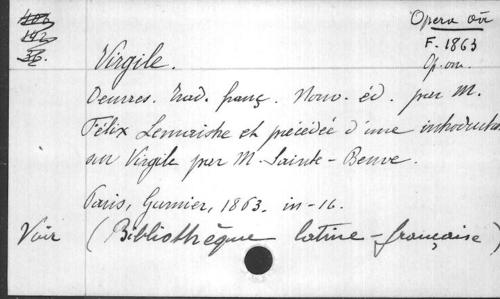 Opera om
F. 1863
Op. om.
142
36.
Virgile.
Oeuvres. Trad. franç. Nouv. éd. par M.
Félix Lemaistre et précédée d'une introduction
sur Virgile par M. Sainte-Beuve.
Paris, Garnier, 1863. in-16.
Voir (Bibliothèque latine-française)